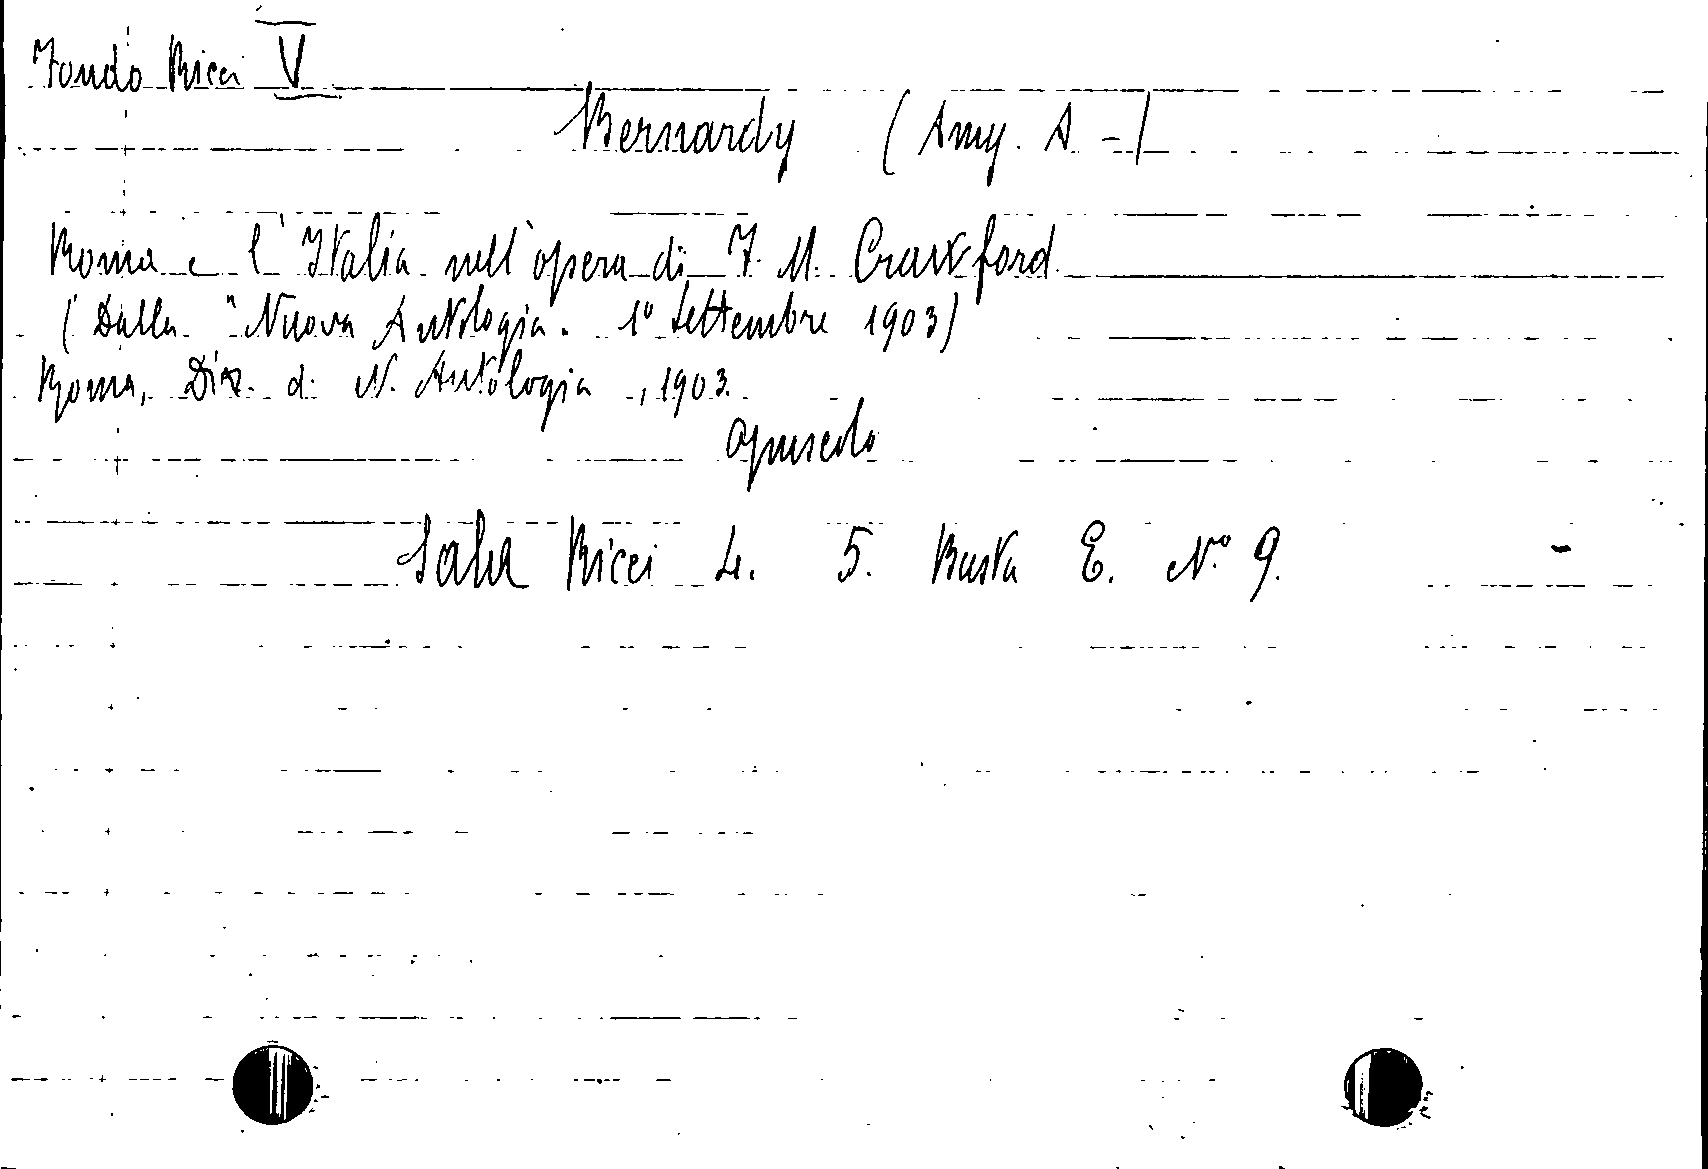 Fondo Ricci V
Bernardy (Amy. A -)
Roma e l'Italia nell'opera di F. M. Crawford
(Dalla "Nuova Antologia. 1º Settembre 1903)
Roma, Dir. d. N. Antologia, 1903.
Opuscolo
Sala Ricci 4. 5. Busta E. Nº 9.